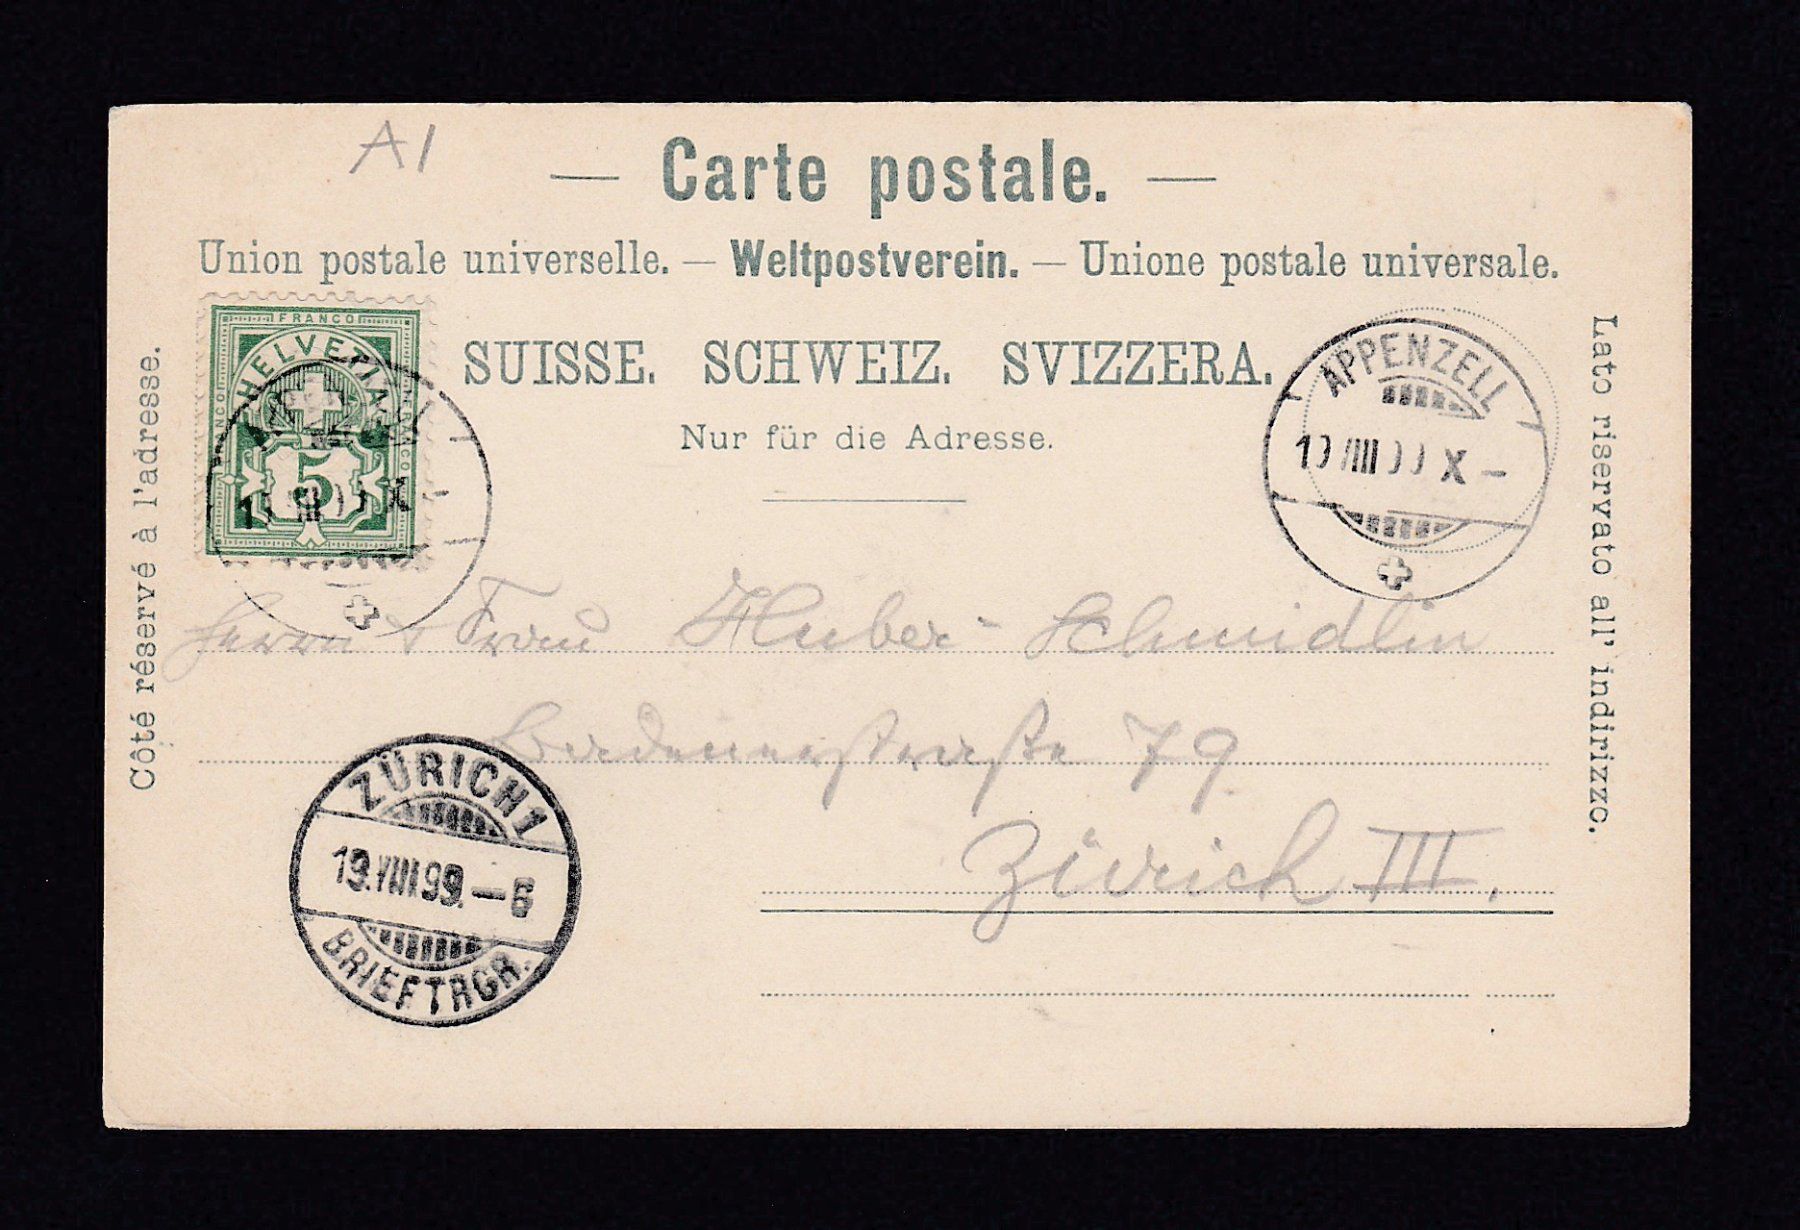 A1
— Carte postale. —
Union postale universelle. — Weltpostverein. — Unione postale universale.
SUISSE. SCHWEIZ. SVIZZERA.
Nur für die Adresse.
Côté réservé à l'adresse.
Lato riservato all' indirizzo.
FRANCO
FRANCO
FRANCO
HELVETIA
5
APPENZELL
VIII X –
Herrn & Frau Huber-Schmidlin
Badenerstraße 79
Zürich III.
ZÜRICH 1
19.VIII.99.–6
BRIEFTRGR.